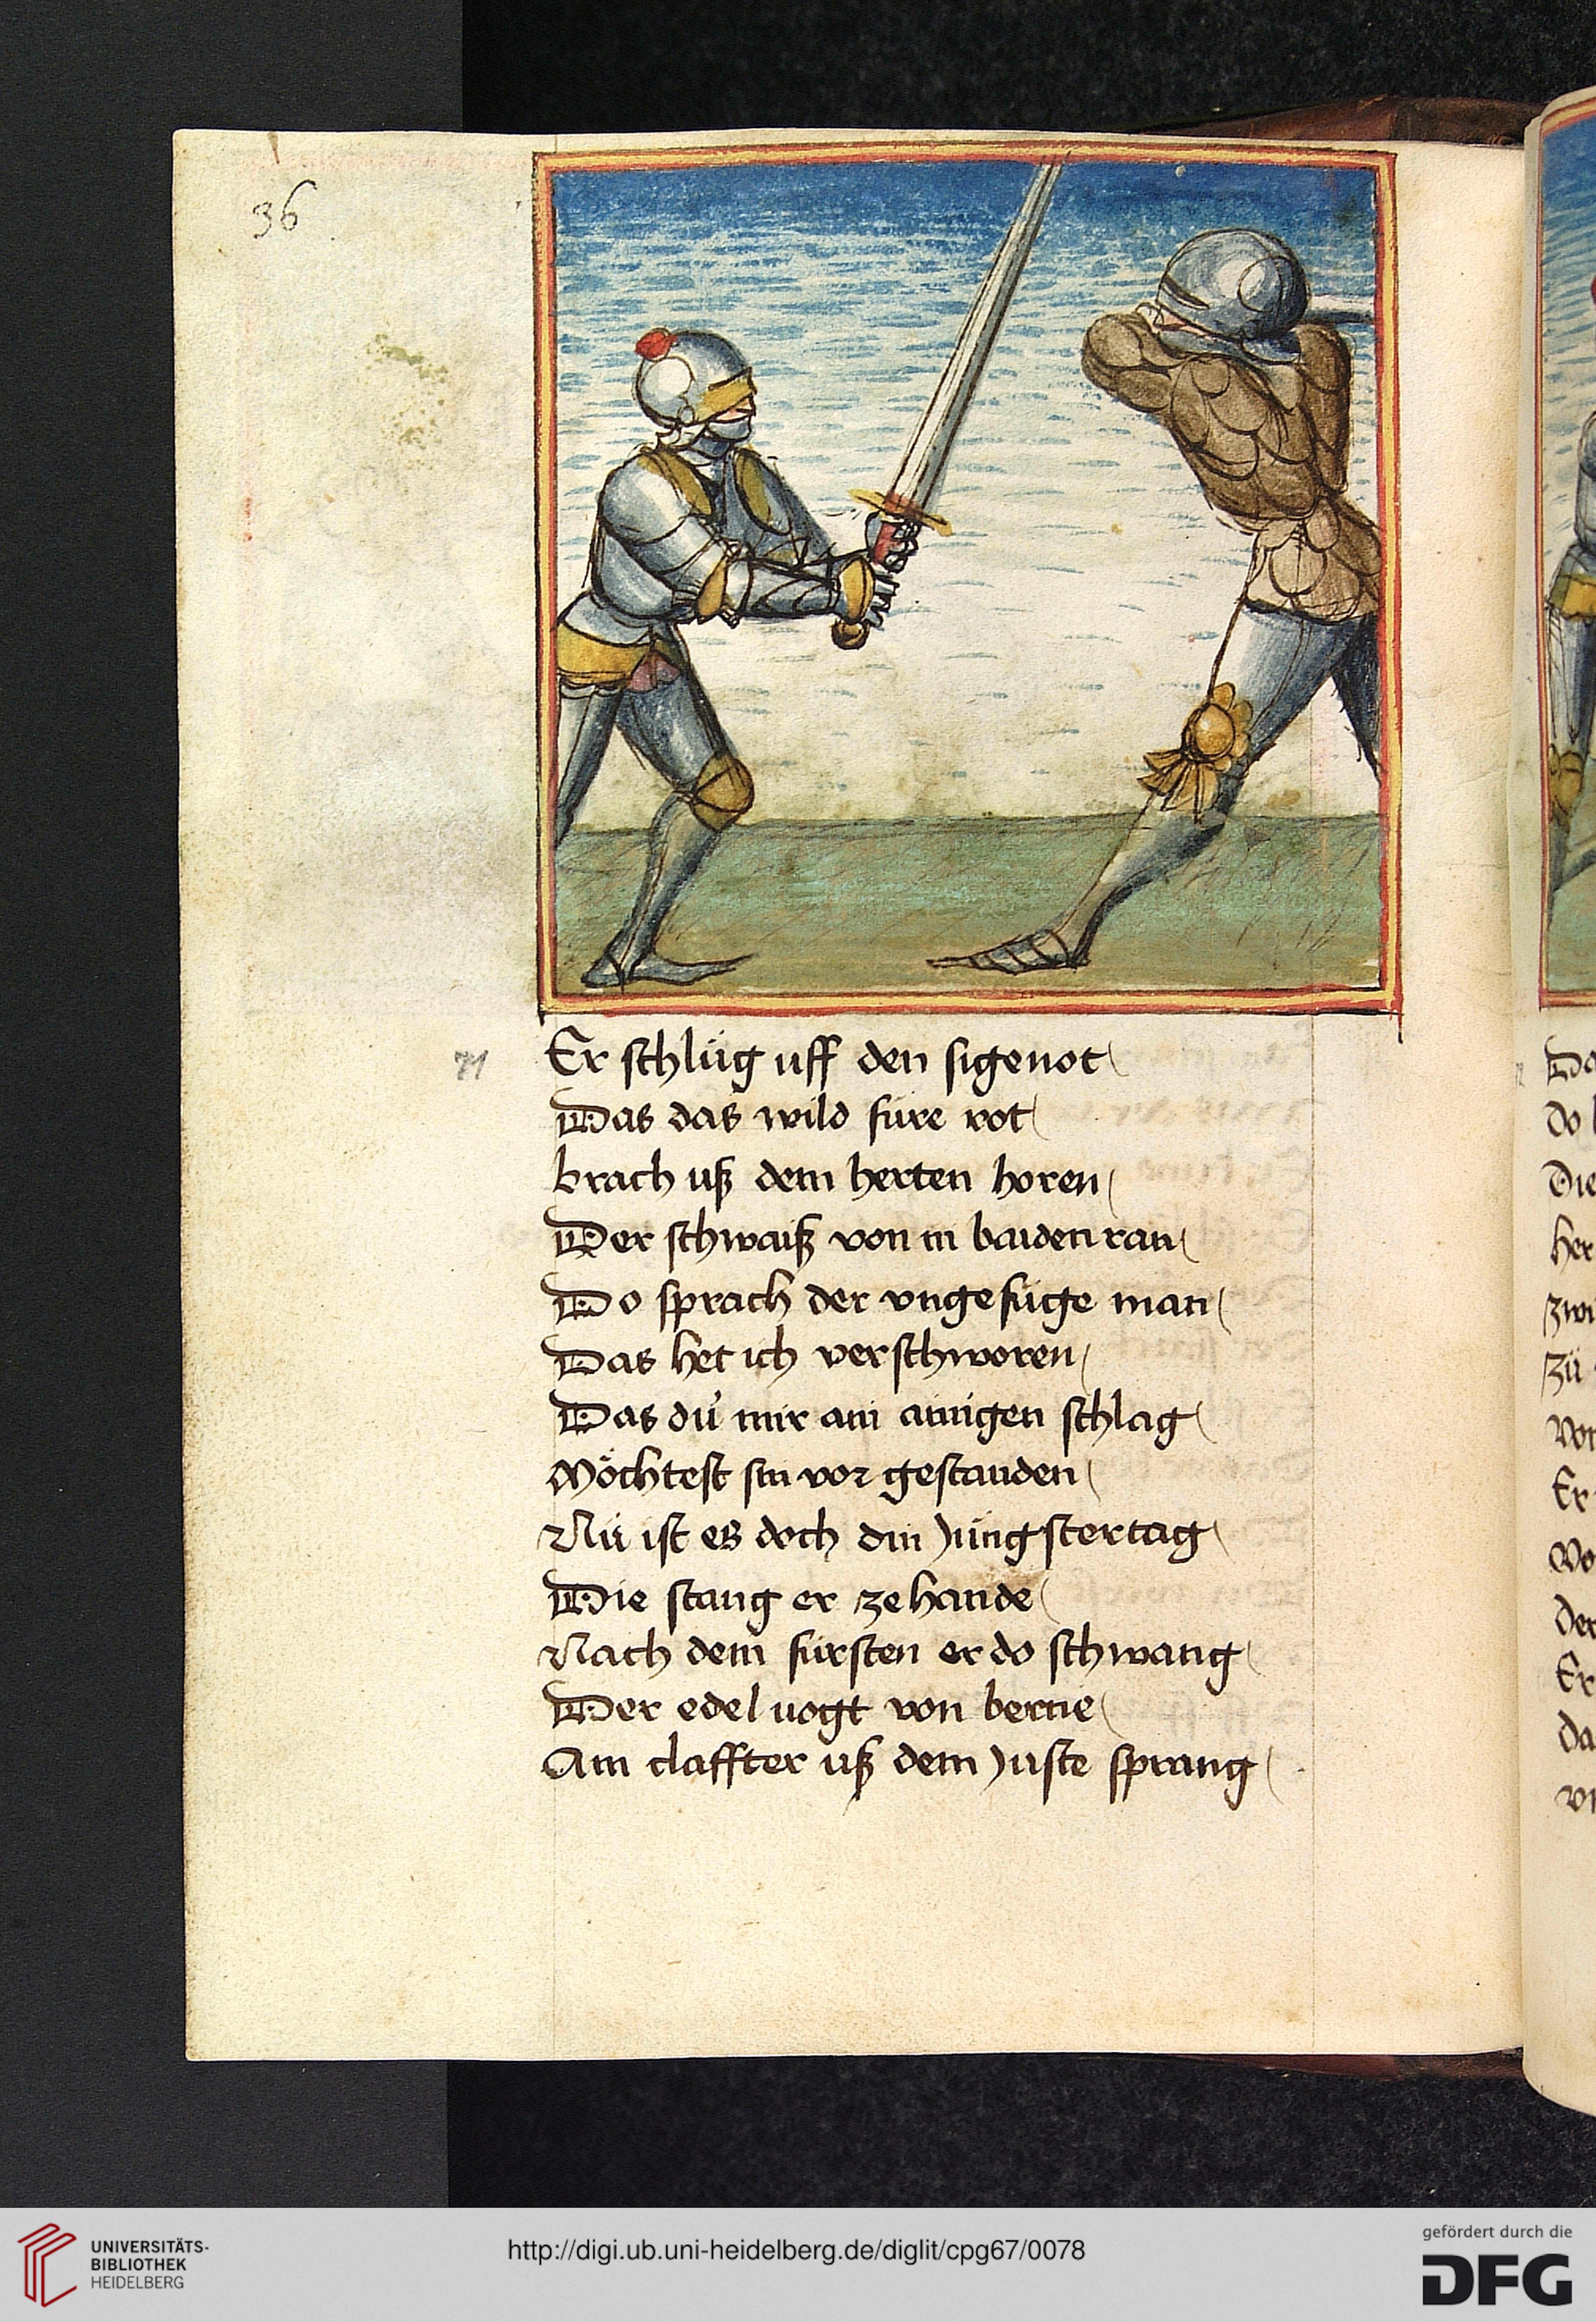 36
71
Er schlüg uff den sigenot
Das das wild füre rot
brach uß dem herten horen
Der schwaiß von in baiden ran
Do sprach der vngefüge man
Das het ich verschworen
Das dü mir ain ainigen schlag
Möchtest sin vor gestanden
Nü ist es doch din jüngster tag
Die stang er ze hande
Nach dem fürsten er do schwang
Der edel uogt von berne
Ain claffter uß dem juste sprang
Do
Die
her
zwi
zü
Er
Der
Er
Da
UNIVERSITÄTS-
BIBLIOTHEK
HEIDELBERG
http://digi.ub.uni-heidelberg.de/diglit/cpg67/0078
gefördert durch die
DFG